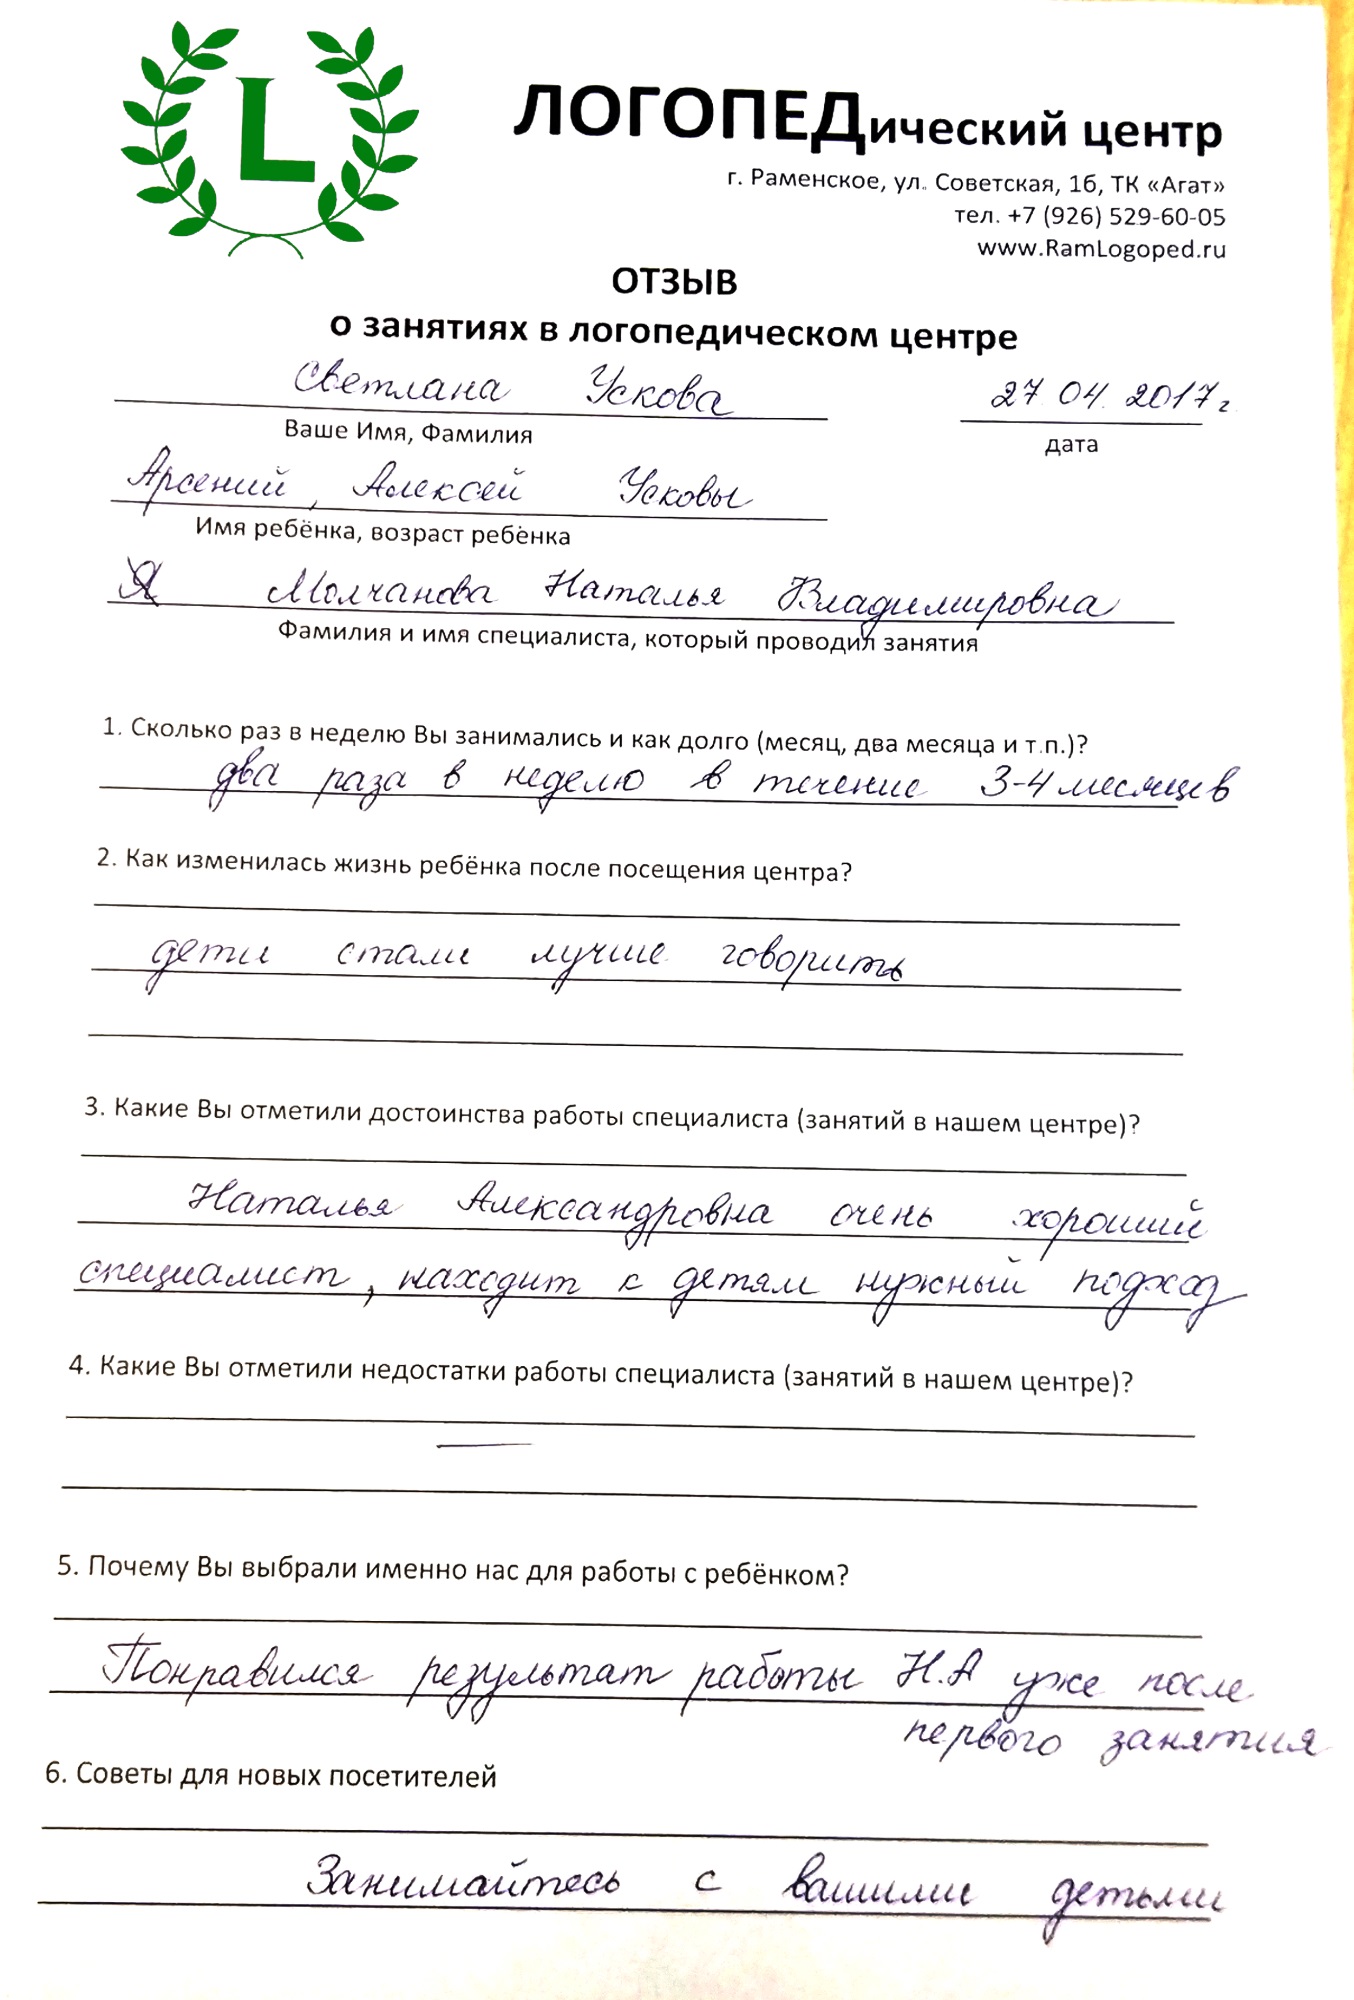 L
ЛОГОПЕДический центр
г. Раменское, ул. Советская, 1б, ТК «Агат»
тел. +7 (926) 529-60-05
www.RamLogoped.ru
ОТЗЫВ
о занятиях в логопедическом центре
Светлана Ускова 27.04.2017г.
Ваше Имя, Фамилия дата
Арсений, Алексей Усковы
Имя ребёнка, возраст ребёнка
Я Молчанова Наталья Владимировна
Фамилия и имя специалиста, который проводил занятия
1. Сколько раз в неделю Вы занимались и как долго (месяц, два месяца и т.п.)?
два раза в неделю в течение 3-4 месяцев
2. Как изменилась жизнь ребёнка после посещения центра?
дети стали лучше говорить
3. Какие Вы отметили достоинства работы специалиста (занятий в нашем центре)?
Наталья Александровна очень хороший
специалист, находит к детям нужный подход
4. Какие Вы отметили недостатки работы специалиста (занятий в нашем центре)?
—
5. Почему Вы выбрали именно нас для работы с ребёнком?
Понравился результат работы Н.А уже после
первого занятия
6. Советы для новых посетителей
Занимайтесь с вашими детьми